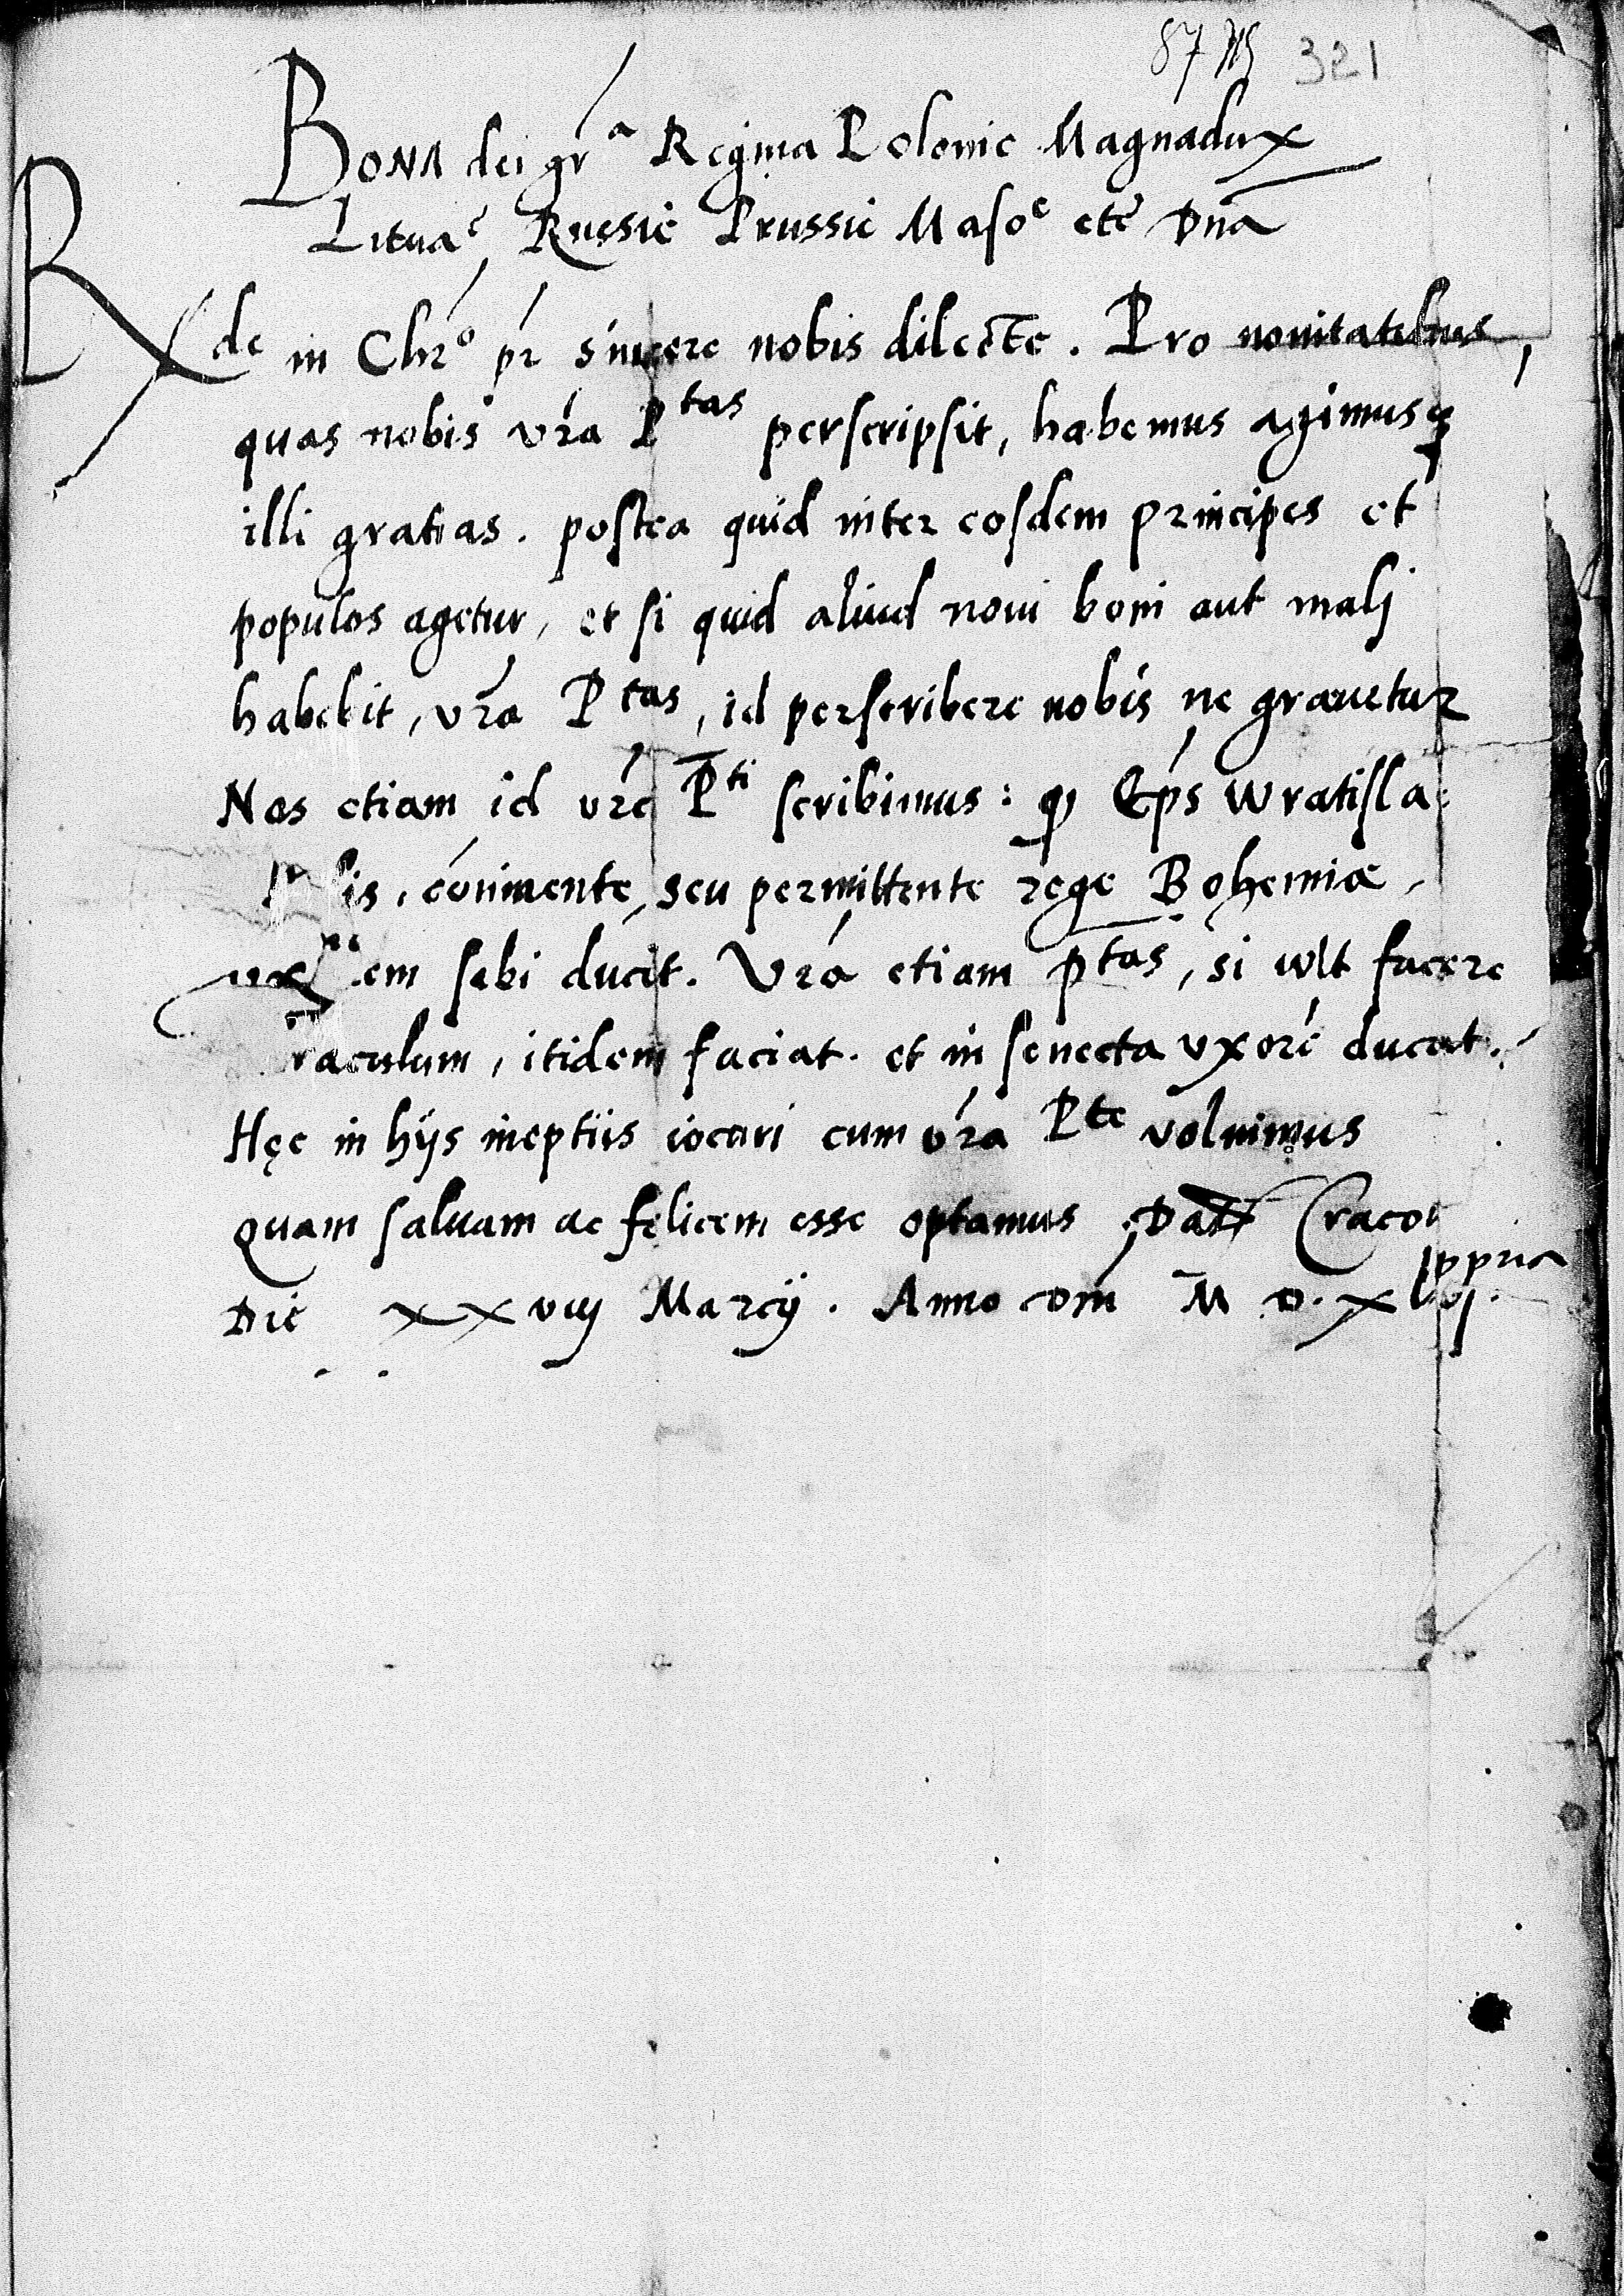 321
BONA dei gr̃a Regina Polonie Magnadux
Lituae Russie Prussie Masoe etc̃ Dña
Rde in Chr̃o pr̃ sincere nobis dilecte. Pro nouitatibus,
quas nobis vr̃a Ptas perscripsit, habemus agimusq;
illi gratias. postea quid inter eosdem principes et
populos agetur, et si quid aliud noui boni aut malj
habebit, vr̃a Ptas, id perscribere nobis ne grauetur
Nos etiam id vr̃e Pti scribimus: q Ep̃s wratisla-
conniuente, seu permittente rege Bohemiæ,
sibi ducit. Vr̃a etiam ptas, si wlt facere
raculum, itidem faciat. et in senecta vxorẽ ducat.
Hęc in hijs ineptiis iocari cum vr̃a Pte voluimus
quam saluam ac felicem esse optamus. Datt Cracou
Die xxviij Marcij. Anno dom̃ M D. xlvj.
ppria